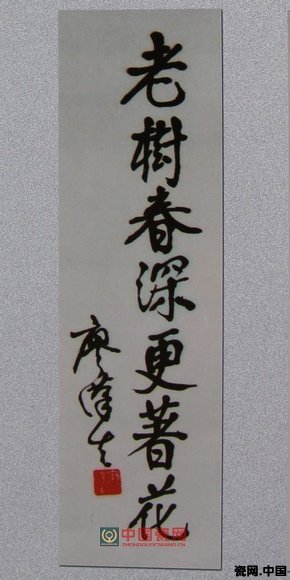 老樹春深更著花
廖漢生
中国瓷网
ZHONGGUOCIWANG.CN
瓷网.中国